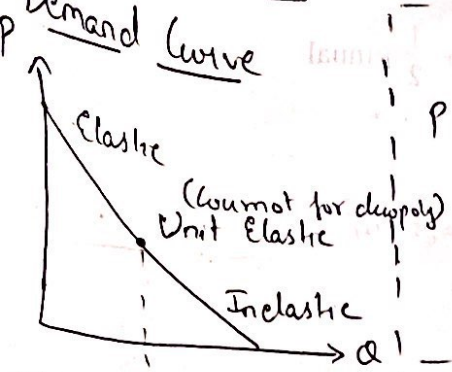 Demand Curve
P
Elastic
P
(Cournot for duopoly)
Unit Elastic
Inelastic
Q